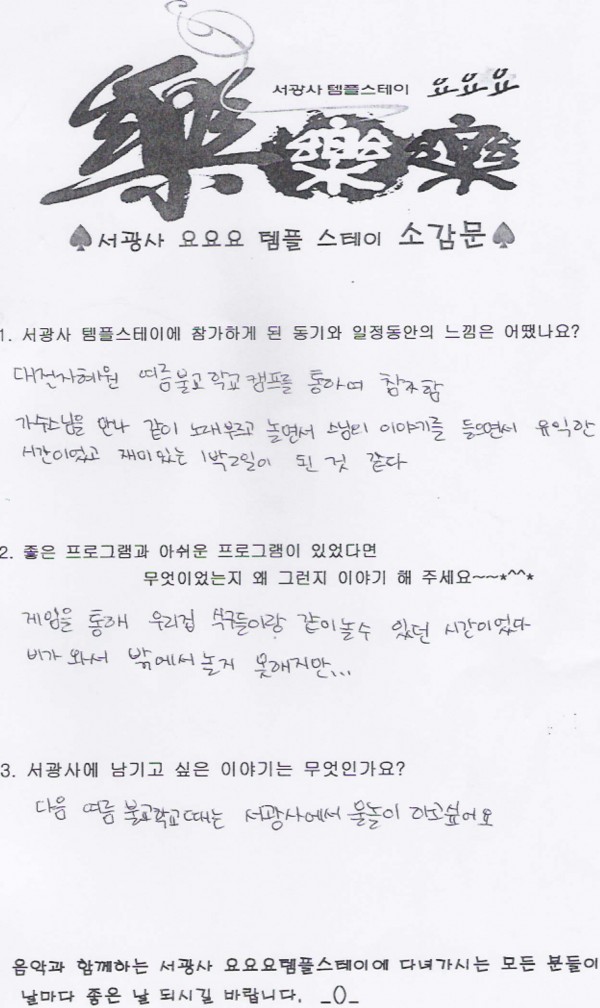 서광사 템플스테이 요요요
樂樂樂
♠서광사 요요요 템플 스테이 소감문♠
1. 서광사 템플스테이에 참가하게 된 동기와 일정동안의 느낌은 어땠나요?
대전자혜원 여름불교학교캠프를 통하여 참가함
가수스님을 만나 같이 노래부르고 놀면서 스님의 이야기를 들으면서 유익한
시간이었고 재미있는 1박2일이 된 것 같다
2. 좋은 프로그램과 아쉬운 프로그램이 있었다면
무엇이었는지 왜 그런지 이야기 해 주세요~~*^^*
게임을 통해 우리집 식구들이랑 같이놀수 있던 시간이었다
비가 와서 밖에서 놀지 못해지만...
3. 서광사에 남기고 싶은 이야기는 무엇인가요?
다음 여름 불교학교때는 서광사에서 물놀이 하고싶어요
음악과 함께하는 서광사 요요요템플스테이에 다녀가시는 모든 분들이
날마다 좋은 날 되시길 바랍니다. _()_